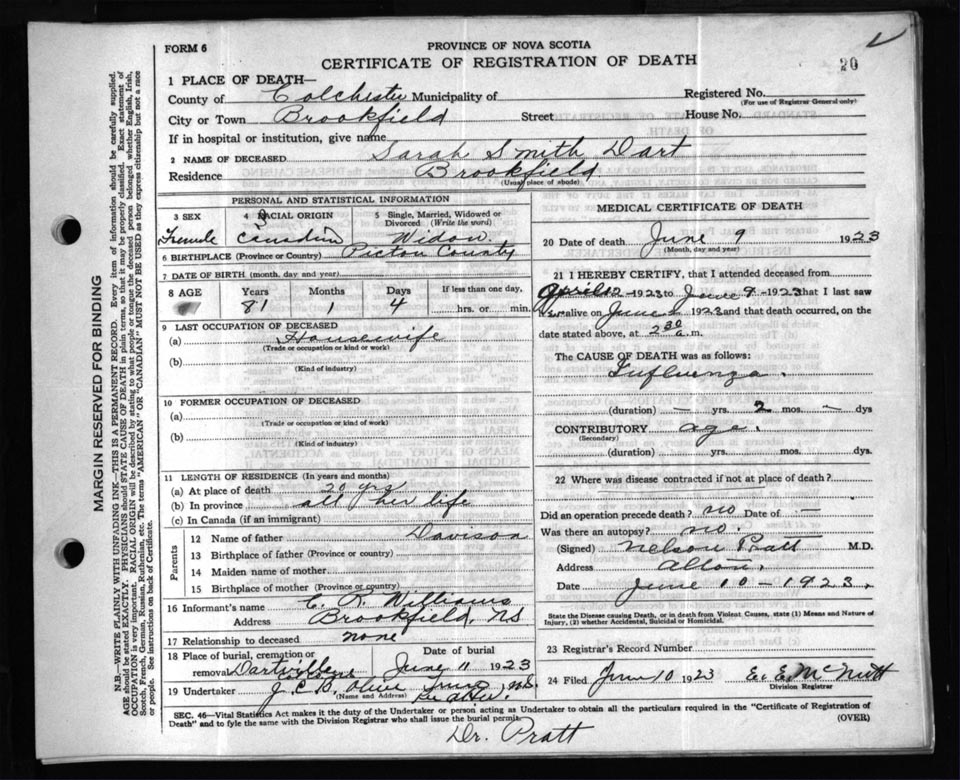 FORM 6
PROVINCE OF NOVA SCOTIA
CERTIFICATE OF REGISTRATION OF DEATH
20
1 PLACE OF DEATH—
County of Colchester Municipality of
Registered No.
(For use of Registrar General only)
City or Town Brookfield Street House No.
If in hospital or institution, give name
2 NAME OF DECEASED Sarah Smith Dart
Residence Brookfield
(Usual place of abode)
PERSONAL AND STATISTICAL INFORMATION
3 SEX 4 RACIAL ORIGIN 5 Single, Married, Widowed or Divorced (Write the word)
Female Canadian Widow
6 BIRTHPLACE (Province or Country) Pictou County
7 DATE OF BIRTH (month, day and year)
8 AGE Years Months Days If less than one day,
81 1 4 hrs. or min.
9 LAST OCCUPATION OF DECEASED
(a) Housewife
(Trade or occupation or kind or work)
(b)
(Kind of industry)
10 FORMER OCCUPATION OF DECEASED
(a)
(Trade or occupation or kind or work)
(b)
(Kind of industry)
11 LENGTH OF RESIDENCE (In years and months)
(a) At place of death 20 yrs
(b) In province all her life
(c) In Canada (if an immigrant)
Parents
12 Name of father Davison
13 Birthplace of father (Province or country)
14 Maiden name of mother
15 Birthplace of mother (Province or country)
16 Informant's name Williams
Address Brookfield, NS
17 Relationship to deceased none
18 Place of burial, cremation or removal Date of burial
June 11 1923
19 Undertaker J.C.B. Olive Truro, N.S.
(Name and Address)
MEDICAL CERTIFICATE OF DEATH
20 Date of death June 9 1923
(Month, day and year)
21 I HEREBY CERTIFY, that I attended deceased from
April 12 -1923 to June 9 -1923 that I last saw
alive on June 1923 and that death occurred, on the
date stated above, at 2 30 a.m.
The CAUSE OF DEATH was as follows:
Influenza.
(duration) — yrs. 2 mos. — dys
CONTRIBUTORY age.
(Secondary)
(duration) yrs. mos. dys.
22 Where was disease contracted if not at place of death?
Did an operation precede death? no Date of —
Was there an autopsy? no.
(Signed) Nelson Pratt M.D.
Address
Date June 10 - 1923.
State the Disease causing Death, or in death from Violent Causes, state (1) Means and Nature of
Injury, (2) whether Accidental, Suicidal or Homicidal.
23 Registrar's Record Number
24 Filed June 10 1923 E. E. McNutt
Division Registrar
SEC. 46—Vital Statistics Act makes it the duty of the Undertaker or person acting as Undertaker to obtain all the particulars required in the "Certificate of Registration of
Death" and to fyle the same with the Division Registrar who shall issue the burial permit.
(OVER)
Dr. Pratt
MARGIN RESERVED FOR BINDING
N.B.—WRITE PLAINLY WITH UNFADING INK—THIS IS A PERMANENT RECORD. Every item of information should be carefully supplied.
AGE should be stated EXACTLY. PHYSICIANS should STATE CAUSE OF DEATH in plain terms, so that it may be properly classified. Exact statement of
OCCUPATION is very important. RACIAL ORIGIN will be described by stating to what people or tongue the deceased person belonged whether English, Irish,
Scotch, French, German, Russian, Ruthenian, etc. The terms "AMERICAN" OR "CANADIAN" MUST NOT BE USED as they express citizenship but not a race
or people. See instructions on back of Certificate.